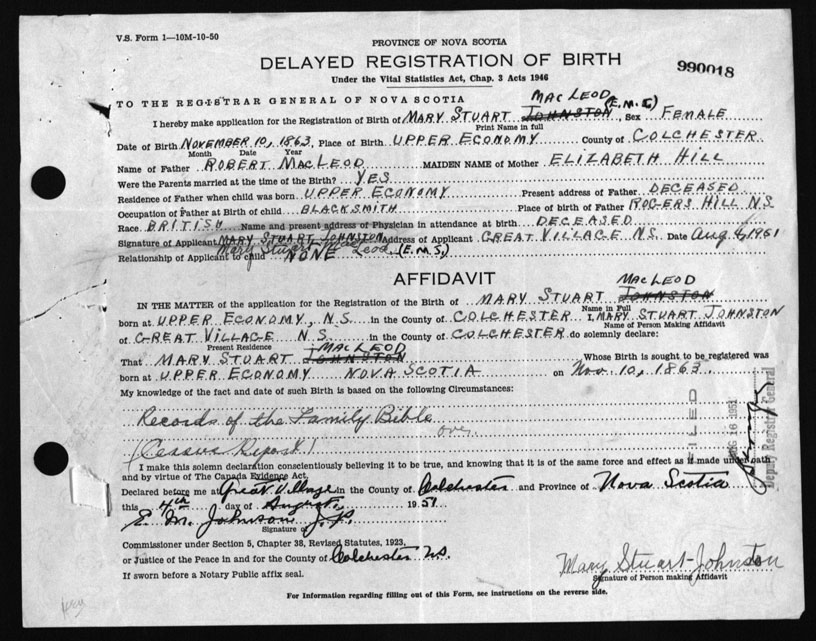 V.S. Form 1—10M-10-50
PROVINCE OF NOVA SCOTIA
DELAYED REGISTRATION OF BIRTH
990018
Under the Vital Statistics Act, Chap. 3 Acts 1946
MACLEOD
TO THE REGISTRAR GENERAL OF NOVA SCOTIA (E.M.J.)
I hereby make application for the Registration of Birth of MARY STUART JOHNSTON, Sex FEMALE
Print Name in full
Date of Birth NOVEMBER 10, 1863, Place of Birth UPPER ECONOMY County of COLCHESTER
Month Date Year
Name of Father ROBERT MACLEOD MAIDEN NAME of Mother ELIZABETH HILL
Were the Parents married at the time of the Birth? YES
Residence of Father when child was born UPPER ECONOMY Present address of Father DECEASED
Occupation of Father at Birth of child BLACKSMITH Place of birth of Father ROGERS HILL N.S
Race BRITISH Name and present address of Physician in attendance at birth DECEASED
Signature of Applicant MARY STUART JOHNSTON Address of Applicant GREAT VILLAGE N.S. Date Aug 4/1951
Mary Stuart Mac Leod (E.M.J.)
Relationship of Applicant to child NONE
AFFIDAVIT
MACLEOD
IN THE MATTER of the application for the Registration of the Birth of MARY STUART JOHNSTON
Name in Full
born at UPPER ECONOMY, N.S. in the County of COLCHESTER I, MARY STUART JOHNSTON
Name of Person Making Affidavit
of GREAT VILLAGE N S. in the County of COLCHESTER do solemnly declare:
Present Residence
MACLEOD
That MARY STUART JOHNSTON Whose Birth is sought to be registered was
born at UPPER ECONOMY NOVA SCOTIA on Nov. 10, 1863.
My knowledge of the fact and date of such Birth is based on the following Circumstances:
Records of the Family Bible
over
(Census Report)
FILED
AUG 16 1951
Deputy Registrar General
I make this solemn declaration conscientiously believing it to be true, and knowing that it is of the same force and effect as if made under oath
and by virtue of The Canada Evidence Act.
Declared before me at Great Village in the County of Colchester and Province of Nova Scotia
this 4th day of August, 1951
E. M. Johnson J.P.
Signature of
Commissioner under Section 5, Chapter 38, Revised Statutes, 1923,
or Justice of the Peace in and for the County of Colchester N.S.
Mary Stuart Johnston
Signature of Person making Affidavit
If sworn before a Notary Public affix seal.
For Information regarding filling out of this Form, see instructions on the reverse side.